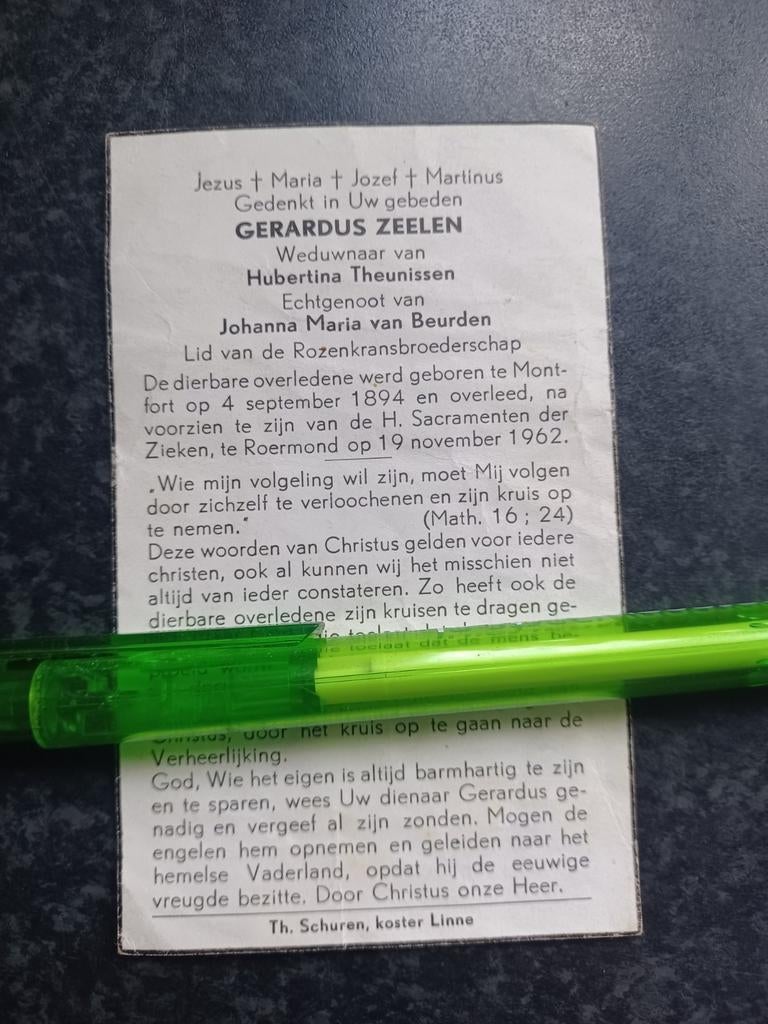 Jezus † Maria † Jozef † Martinus
Gedenkt in Uw gebeden
GERARDUS ZEELEN
Weduwnaar van
Hubertina Theunissen
Echtgenoot van
Johanna Maria van Beurden
Lid van de Rozenkransbroederschap
De dierbare overledene werd geboren te Mont-
fort op 4 september 1894 en overleed, na
voorzien te zijn van de H. Sacramenten der
Zieken, te Roermond op 19 november 1962.
„Wie mijn volgeling wil zijn, moet Mij volgen
door zichzelf te verloochenen en zijn kruis op
te nemen." (Math. 16 ; 24)
Deze woorden van Christus gelden voor iedere
christen, ook al kunnen wij het misschien niet
altijd van ieder constateren. Zo heeft ook de
dierbare overledene zijn kruisen te dragen ge-
toelaat dat de mens be-
Christus, door het kruis op te gaan naar de
Verheerlijking.
God, Wie het eigen is altijd barmhartig te zijn
en te sparen, wees Uw dienaar Gerardus ge-
nadig en vergeef al zijn zonden. Mogen de
engelen hem opnemen en geleiden naar het
hemelse Vaderland, opdat hij de eeuwige
vreugde bezitte. Door Christus onze Heer.
Th. Schuren, koster Linne